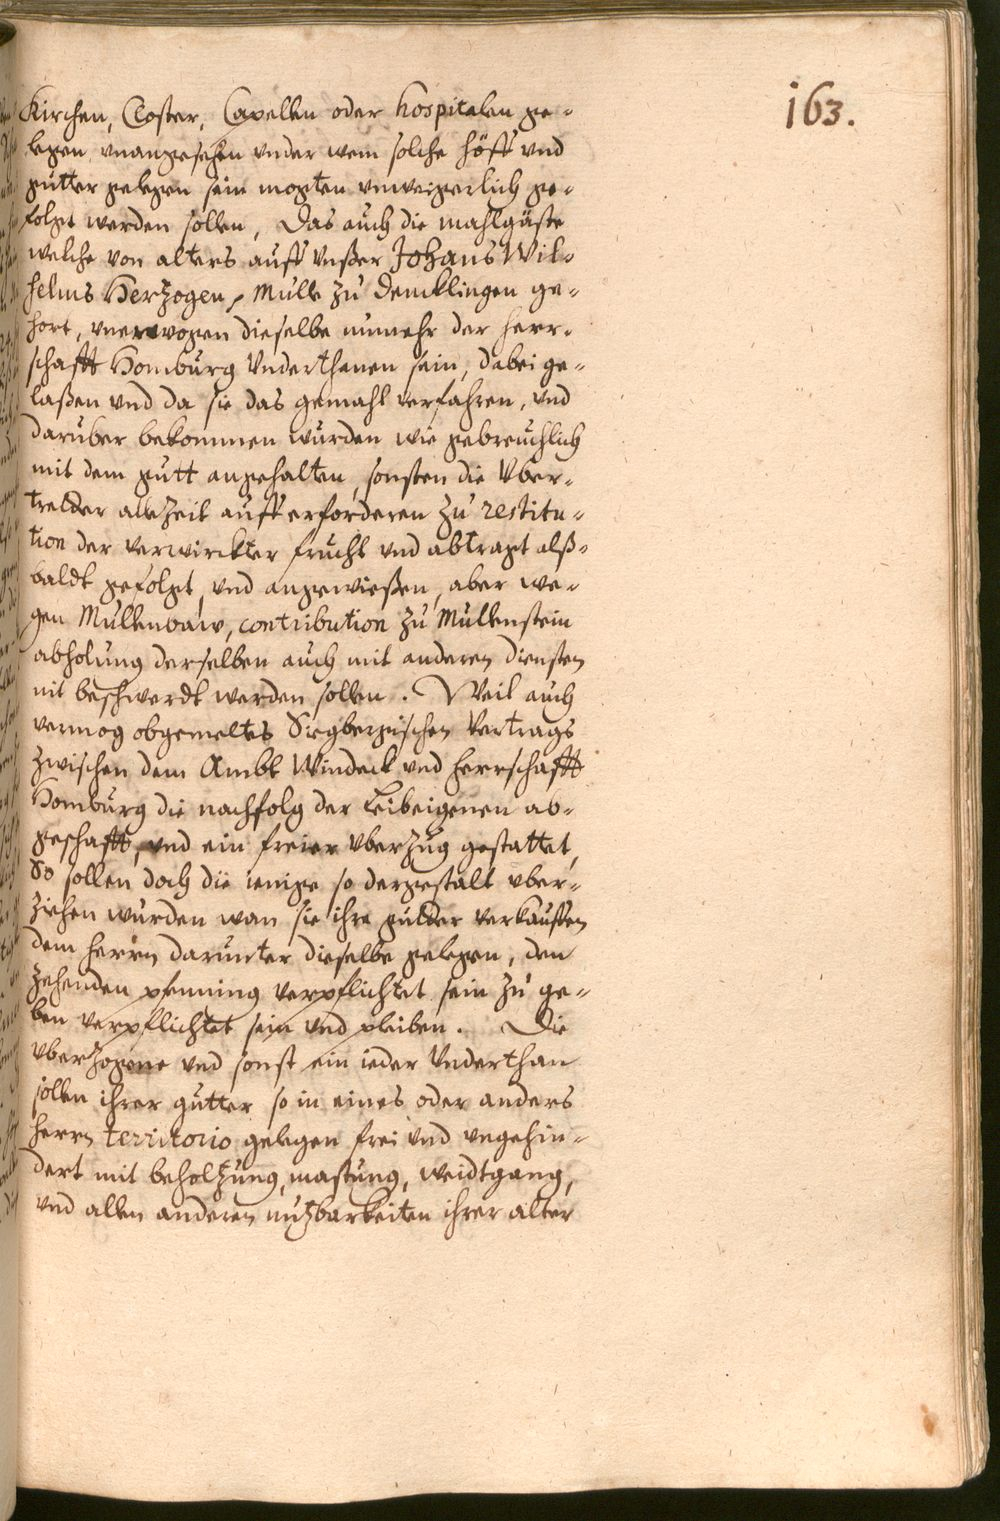 163.
Kirchen, Closter, Capellen oder hospitalen ge-
legen, vnangesehen vnder wem solche höff vnd
gutter gelegen sein mogten vnweigerlich ge-
folgt werden sollen, Das auch die mahlgäste
welche von alters auff vnßer Johans Wil-
helms Herzogen, Mulle zu Dencklingen ge-
hort, vnerwogen dieselbe nunmehr der herr-
schafft Homburg Vnderthanen sein, dabei ge-
laßen vnd da sie das gemahl verfahren, vnd
daruber bekommen wurden wie gebreuchlich
mit dem gutt angehalten, sonsten die Vber-
tretter alle Zeit auff erforderen zu restitu-
tion der verwirckter frucht vnd abtragt alß-
baldt gefolgt, vnd angewießen, aber we-
gen Mullenbaw, contribution zu Mullenstein
abholung derselben auch mit anderen diensten
nit beschwerdt werden sollen. Weil auch
vermog obgemeltes Siegbergischen Vertrags
zwischen dem Ambt Windeck vnd herrschafft
Homburg die nachfolg der Leibeigenen ab-
geschafft, vnd ein freier vberzug gestattet,
So sollen doch die ienige so dergestalt vber-
ziehen wurden wan sie ihre gutter verkauffen
dem herrn darunter dieselbe gelegen, den
zehenden pfenning verpflichtet sein zu ge-
ben verpflichtet sein vnd pleiben. Die
vberzogene vnd sonst ein ieder Vnderthan
sollen ihrer gutter so in eines oder anders
herrn territorio gelegen frei vnd vngehin-
dert mit beholtzung, mastung, weidtgang,
vnd allen anderen nutzbarkeiten ihrer alter